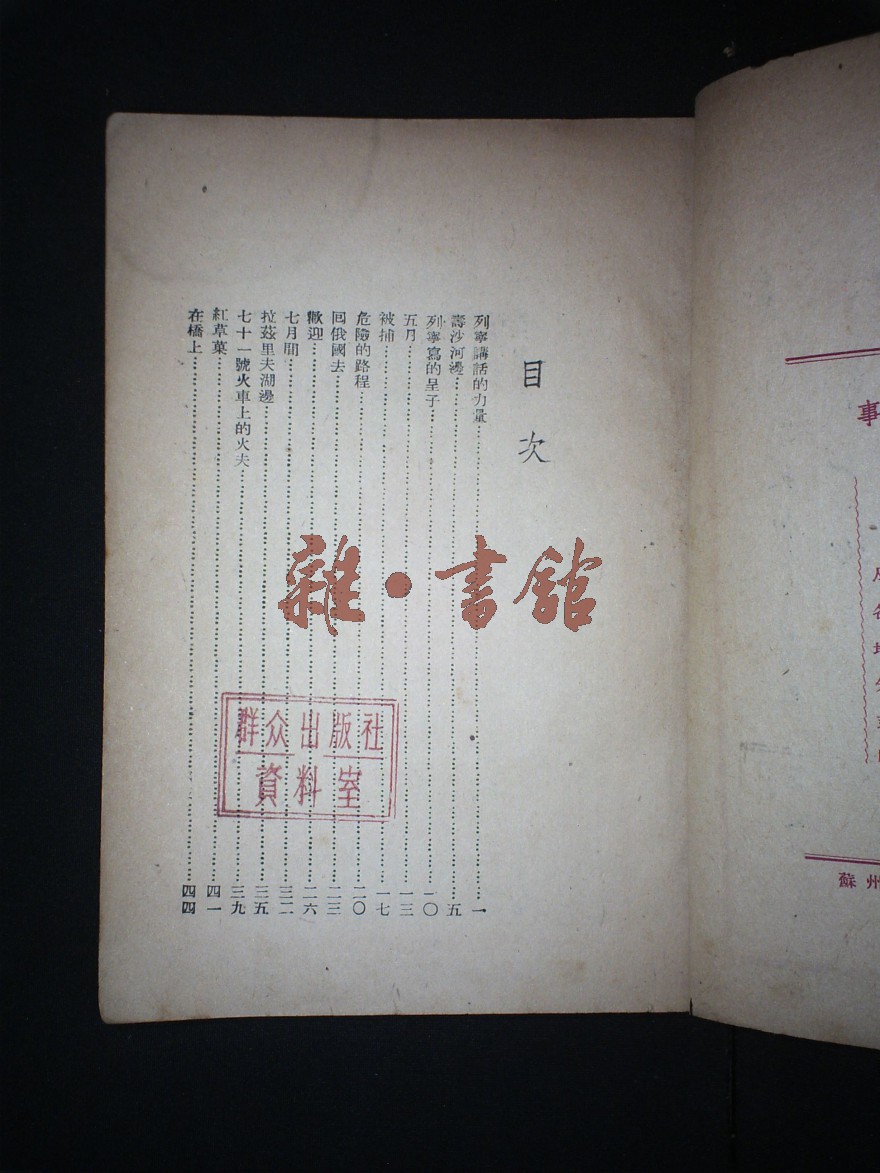 目次
列寧講話的力量 一
壽沙河邊 五
列寧寫的呈子 一〇
五月 一三
被捕 一七
危險的路程 二〇
回俄國去 二三
歡迎 二六
七月間 三二
拉茲里夫湖邊 三五
七十一號火車上的火夫 三九
紅草菓 四一
在橋上 四四
雜·書館
群众出版社
資料室
事
蘇州